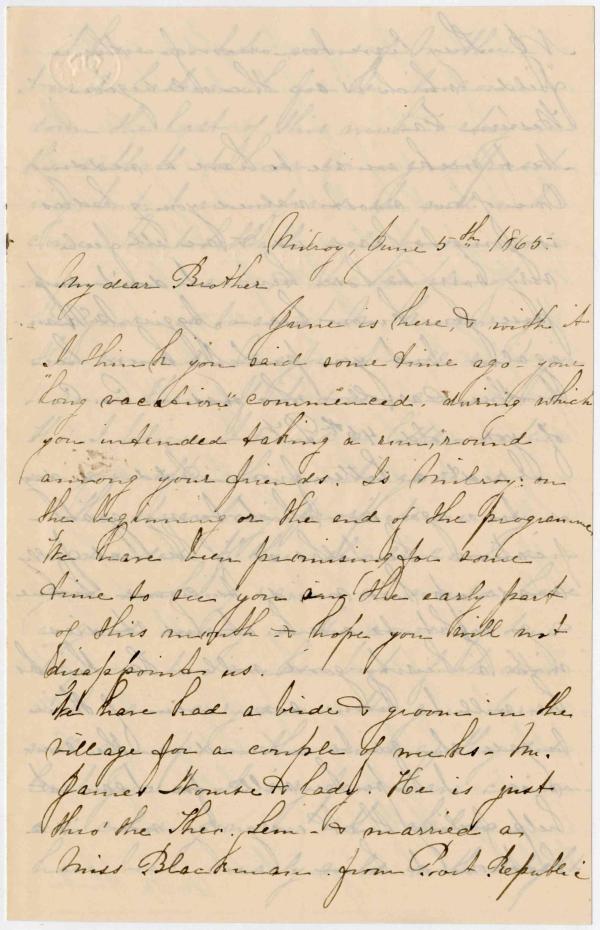 Milroy, June 5th 1865.
My dear Brother
June is here, & with it
I think you said some time ago - your
"long vacation" commenced. during which
you intended taking a run, round
among your friends. Is Milroy: on
the beginning or the end of the programme
We have been promising for some
time to see you in the early part
of this month - & hope you will not
disappoint us.
We have had a bride & groom in the
village for a couple of weeks - Mr.
James & lady. He is just
thro' the Theo. Sem - & married a
Miss Blackman from Port Republic